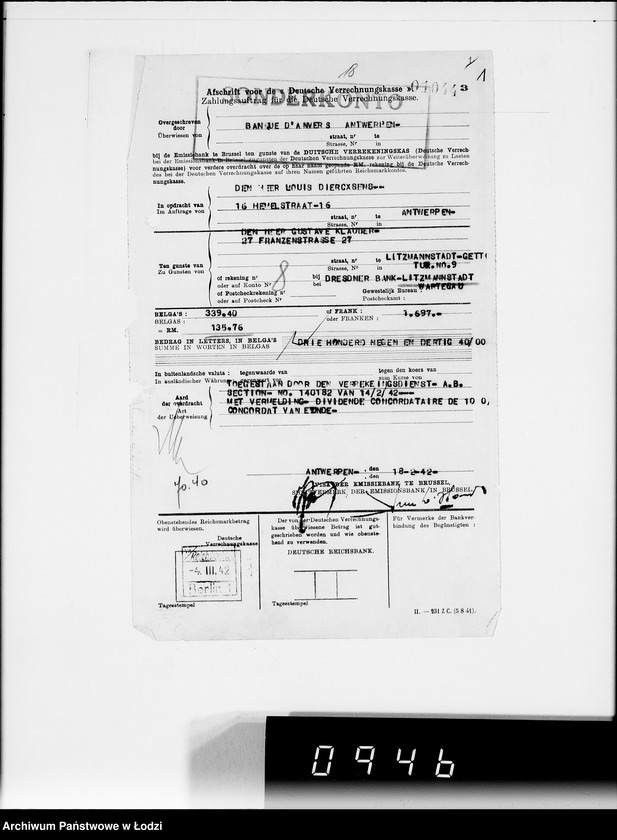 1
Afschrift voor de « Deutsche Verrechnungskasse ».
SONDERKONTO
Zahlungsauftrag für die Deutsche Verrechnungskasse.
Overgeschreven door
Ueberwiesen von
BANQUE D'ANVERS ANTWERPEN-
straat, nr te
Strasse, Nr in
bij de Emissiebank te Brussel ten gunste van de DUITSCHE VERREKENINGSKAS (Deutsche Verrech-
bei der Emissionsbank in Brüssel zugunsten der Deutschen Verrechnungskasse zur Weiterüberweisung zu Lasten
nungskasse) voor verdere overdracht over op haar naam geopende RM. rekening bij de Deutsche Verrech-
des bei der Deutschen Verrechnungskasse auf ihren Namen geführten Reichsmarkkontos.
nungskasse.
DEN HEER LOUIS DIERCXSENS--
In opdracht van
Im Auftrage von
16 HEMELSTRAAT-16
straat, nr te
Strasse, Nr in
ANTWERPEN-
DEN HEER GUSTAVE KLAUBER-
27 FRANZENSTRASSE 27
Ten gunste van
Zu Gunsten von
straat, nr te
Strasse, Nr in
LITZMANNSTADT-GETTO
TUR.NO.9
of rekening nr
oder auf Konto Nr
8
bij
bei
DRESDNER BANK-LITZMANNSTADT
WARTEGAU
of Postcheckrekening nr
oder auf Postcheck Nr
Gewestelijk Bureau :
Postcheckamt :
BELGA'S : 339.40
BELGAS :
of FRANK : 1.697.-
oder FRANKEN :
= RM. 135.76
BEDRAG IN LETTERS, IN BELGA'S
SUMME IN WORTEN IN BELGAS
DRIE HONDERD NEGEN EN DERTIG 40/00
In buitenlandsche valuta : tegenwaarde van
tegen den koers van
In ausländischer Währung :
zum Kurse von
Aard
der overdracht
Art
der Ueberweisung
TOEGESTAAN DOOR DEN VERREKENINGSDIENST- A.B.
SECTION- NO. 140182 VAN 14/2/42--
MET VERMELDING- DIVIDENDE CONCORDATAIRE DE 10 0,
CONCORDAT VAN
70.40
ANTWERPEN- , den 18-2-42-
DER EMISSIEBANK TE BRUSSEL,
DER EMISSIONSBANK IN BRÜSSEL,
Obenstehendes Reichsmarkbetrag
wird überwiesen.
Deutsche
Verrechnungskasse
-4. III. 42
Berlin
Tagesstempel
Der von der Deutschen Verrechnungs-
kasse überwiesene Betrag ist gut-
geschrieben worden und wie obenste-
hend zu verwenden.
DEUTSCHE REICHSBANK.
Tagesstempel
Für Vermerke der Bankver-
bindung des Begünstigten :
II. — 231 Z C. (5 8 41).
0946
Archiwum Państwowe w Łodzi